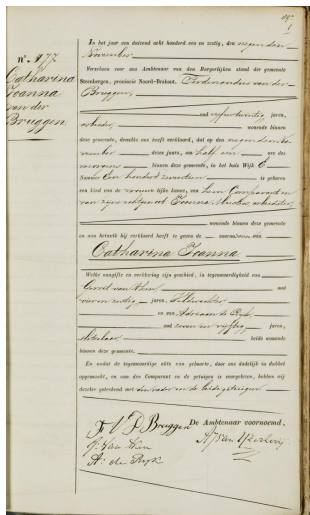 N°. 177
Catharina
Joanna
van der
Bruggen
In het jaar een duizend acht honderd een en zestig, den negenden
November
Verscheen voor ons Ambtenaar van den Burgerlijken stand der gemeente
Steenbergen, provincie Noord-Brabant, Ferdinandus van der
Bruggen,
oud vijfentwintig jaren,
arbeider, wonende binnen
deze gemeente, dewelke ons heeft verklaard, dat op den negenden
November dezes jaars, om half een ure des
morgens binnen deze gemeente, in het huis Wijk
Nummer Een honderd zeventien is geboren
een kind van de vrouwelijke kunne, van hem Comparant en
van zijne echtgenoot Joanna arbeidster
wonende binnen deze gemeente
en aan hetwelk hij verklaard heeft te geven de voornamen van
Catharina Joanna
Welke aangifte en verklaring zijn geschied, in tegenwoordigheid van
Gerrit van Rhen oud
vier en zestig jaren, Veldwachter
en van Adriaan de Rijk
oud zeven en vijftig jaren,
beide wonende
binnen deze gemeente.
En nadat de tegenwoordige akte van geboorte, door ons dadelijk in dubbel
opgemaakt, en aan den Comparant en de getuigen is voorgelezen, hebben wij
dezelve geteekend met den vader en de beide getuigen
F V D Bruggen De Ambtenaar voornoemd,
A: de Rijk